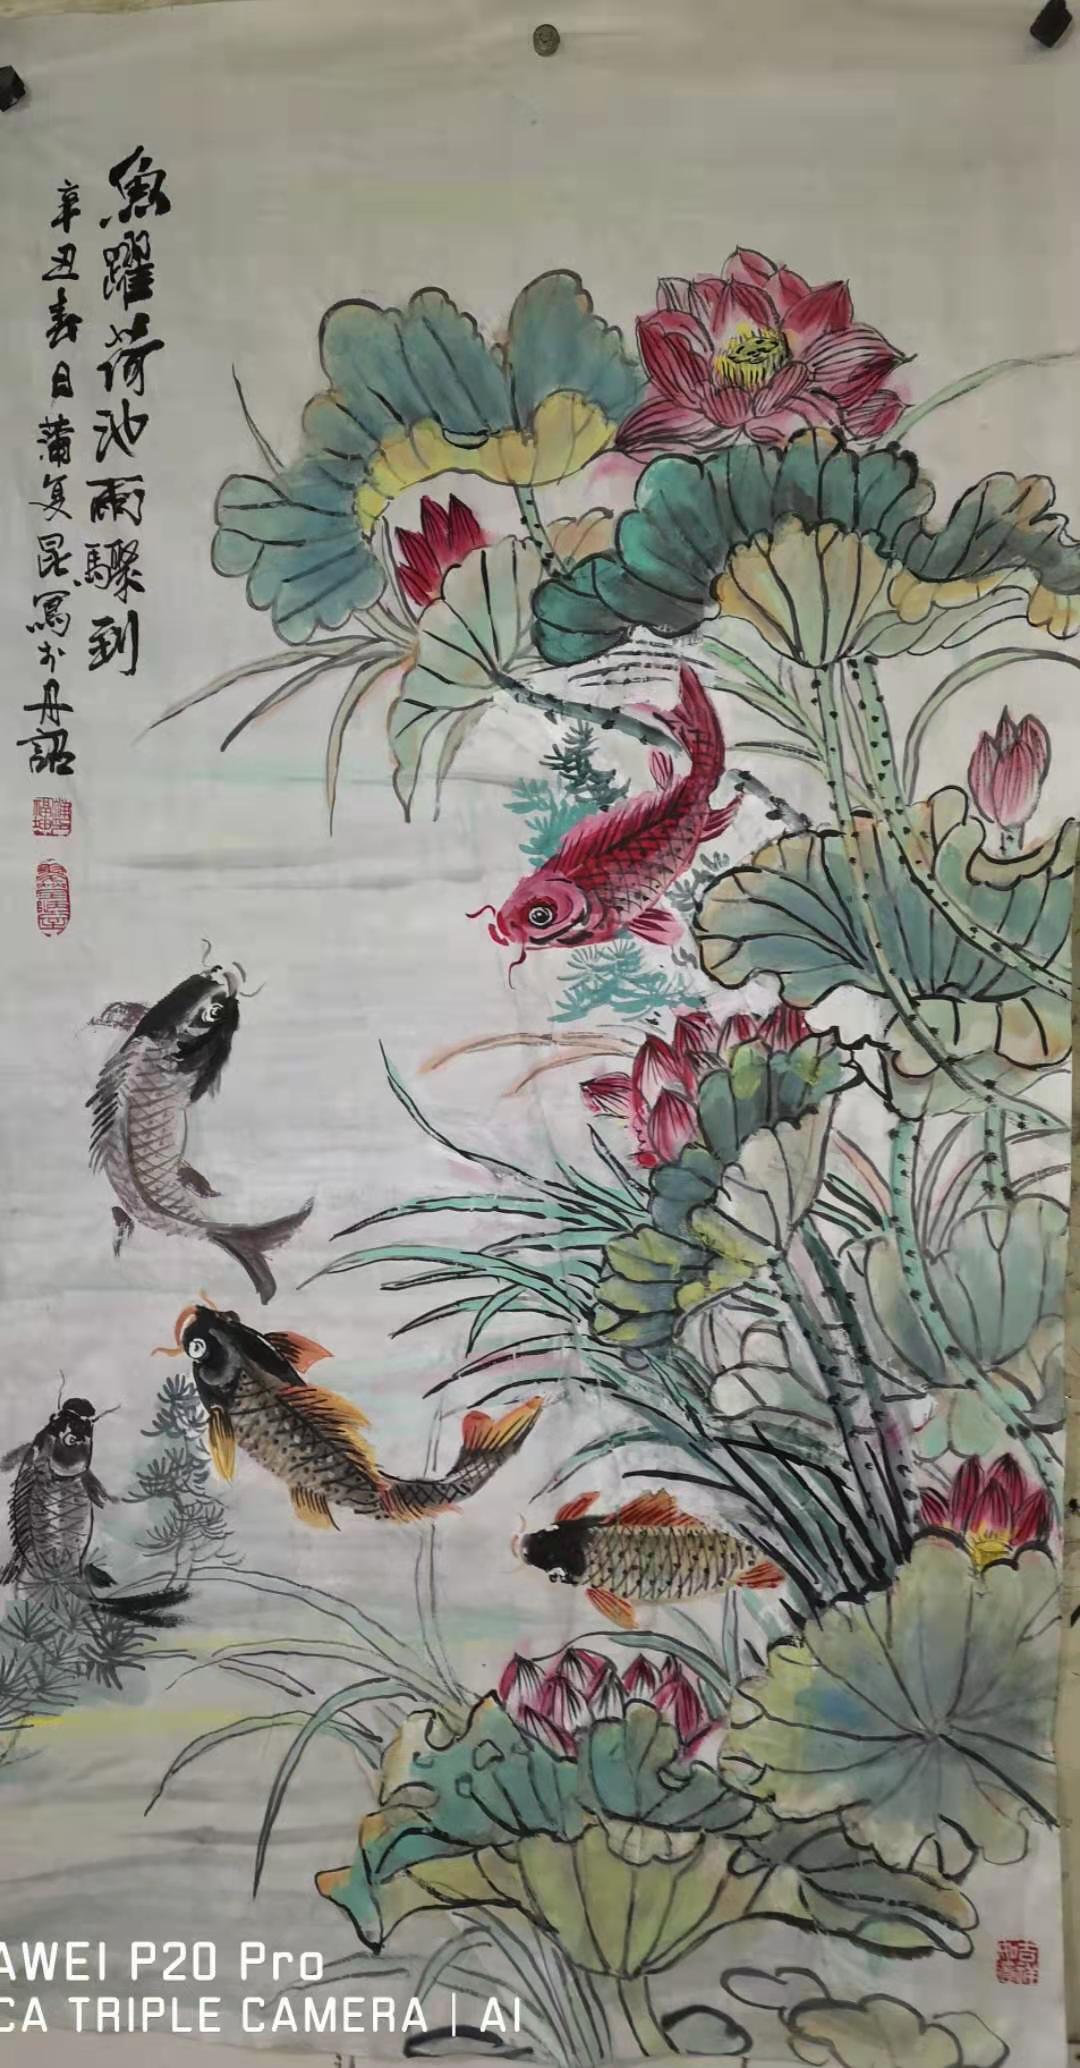 魚躍荷池雨驟到
辛丑春日蒲复昆寫於丹詔
AWEI P20 Pro
CA TRIPLE CAMERA | AI